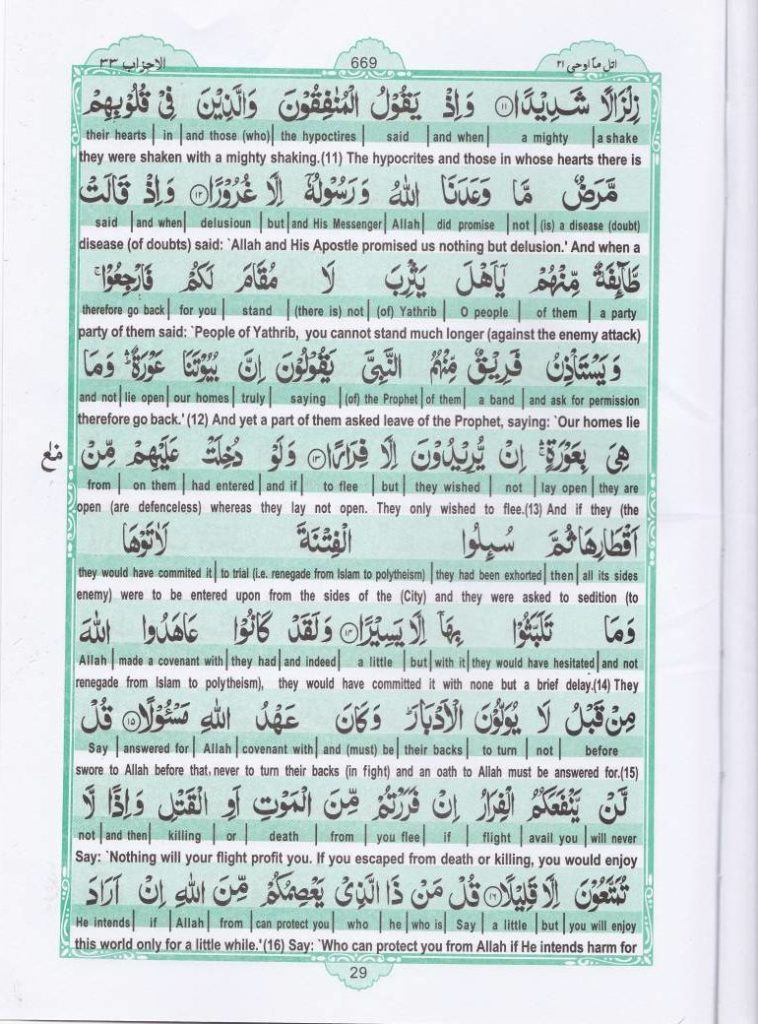 الاحزاب ٣٣ 669 اتل مآ اوحی ٢١
زِلْزَالًا شَدِيْدًا ﴿١١﴾ وَاِذْ يَقُوْلُ الْمُنٰفِقُوْنَ وَالَّذِيْنَ فِيْ قُلُوْبِهِمْ
their hearts | in | and those (who) | the hypoctires | said | and when | a mighty | a shake
they were shaken with a mighty shaking.(11) The hypocrites and those in whose hearts there is
مَّرَضٌ مَّا وَعَدَنَا اللّٰهُ وَرَسُوْلُهٗٓ اِلَّا غُرُوْرًا ﴿١٢﴾ وَاِذْ قَالَتْ
said | and when | delusioun | but | and His Messenger | Allah | did promise | not | (is) a disease (doubt)
disease (of doubts) said: `Allah and His Apostle promised us nothing but delusion.' And when a
طَّآئِفَةٌ مِّنْهُمْ يٰٓاَهْلَ يَثْرِبَ لَا مُقَامَ لَكُمْ فَارْجِعُوْا ۚ
therefore go back | for you | stand | (there is) not | (of) Yathrib | O people | of them | a party
party of them said: `People of Yathrib, you cannot stand much longer (against the enemy attack)
وَيَسْتَاْذِنُ فَرِيْقٌ مِّنْهُمُ النَّبِيَّ يَقُوْلُوْنَ اِنَّ بُيُوْتَنَا عَوْرَةٌ ۛ وَمَا
and not | lie open | our homes | truly | saying | (of) the Prophet | of them | a band | and ask for permission
therefore go back.' (12) And yet a part of them asked leave of the Prophet, saying: `Our homes lie
هِيَ بِعَوْرَةٍ ۛ اِنْ يُّرِيْدُوْنَ اِلَّا فِرَارًا ﴿١٣﴾ وَلَوْ دُخِلَتْ عَلَيْهِمْ مِّنْ
from | on them | had entered | and if | to flee | but | they wished | not | lay open | they are
open (are defenceless) whereas they lay not open. They only wished to flee.(13) And if they (the
اَقْطَارِهَا ثُمَّ سُئِلُوا الْفِتْنَةَ لَاٰتَوْهَا
they would have commited it | to trial (i.e. renegade from Islam to polytheism) | they had been exhorted | then | all its sides
enemy) were to be entered upon from the sides of the (City) and they were asked to sedition (to
وَمَا تَلَبَّثُوْا بِهَآ اِلَّا يَسِيْرًا ﴿١٤﴾ وَلَقَدْ كَانُوْا عَاهَدُوا اللّٰهَ
Allah | made a covenant with | they had | and indeed | a little | but | with it | they would have hesitated | and not
renegade from Islam to polytheism), they would have committed it with none but a brief delay.(14) They
مِنْ قَبْلُ لَا يُوَلُّوْنَ الْاَدْبَارَ ؕ وَكَانَ عَهْدُ اللّٰهِ مَسْئُوْلًا ﴿١٥﴾ قُلْ
Say | answered for | Allah | covenant with | and (must) be | their backs | to turn | not | before
swore to Allah before that, never to turn their backs (in fight) and an oath to Allah must be answered for.(15)
لَّنْ يَّنْفَعَكُمُ الْفِرَارُ اِنْ فَرَرْتُمْ مِّنَ الْمَوْتِ اَوِ الْقَتْلِ وَاِذًا لَّا
not | and then | killing | or | death | from | you flee | if | flight | avail you | will never
Say: `Nothing will your flight profit you. If you escaped from death or killing, you would enjoy
تُمَتَّعُوْنَ اِلَّا قَلِيْلًا ﴿١٦﴾ قُلْ مَنْ ذَا الَّذِيْ يَعْصِمُكُمْ مِّنَ اللّٰهِ اِنْ اَرَادَ
He intends | if | Allah | from | can protect you | who | he | who is | Say | a little | but | you will enjoy
this world only for a little while.'(16) Say: `Who can protect you from Allah if He intends harm for
29